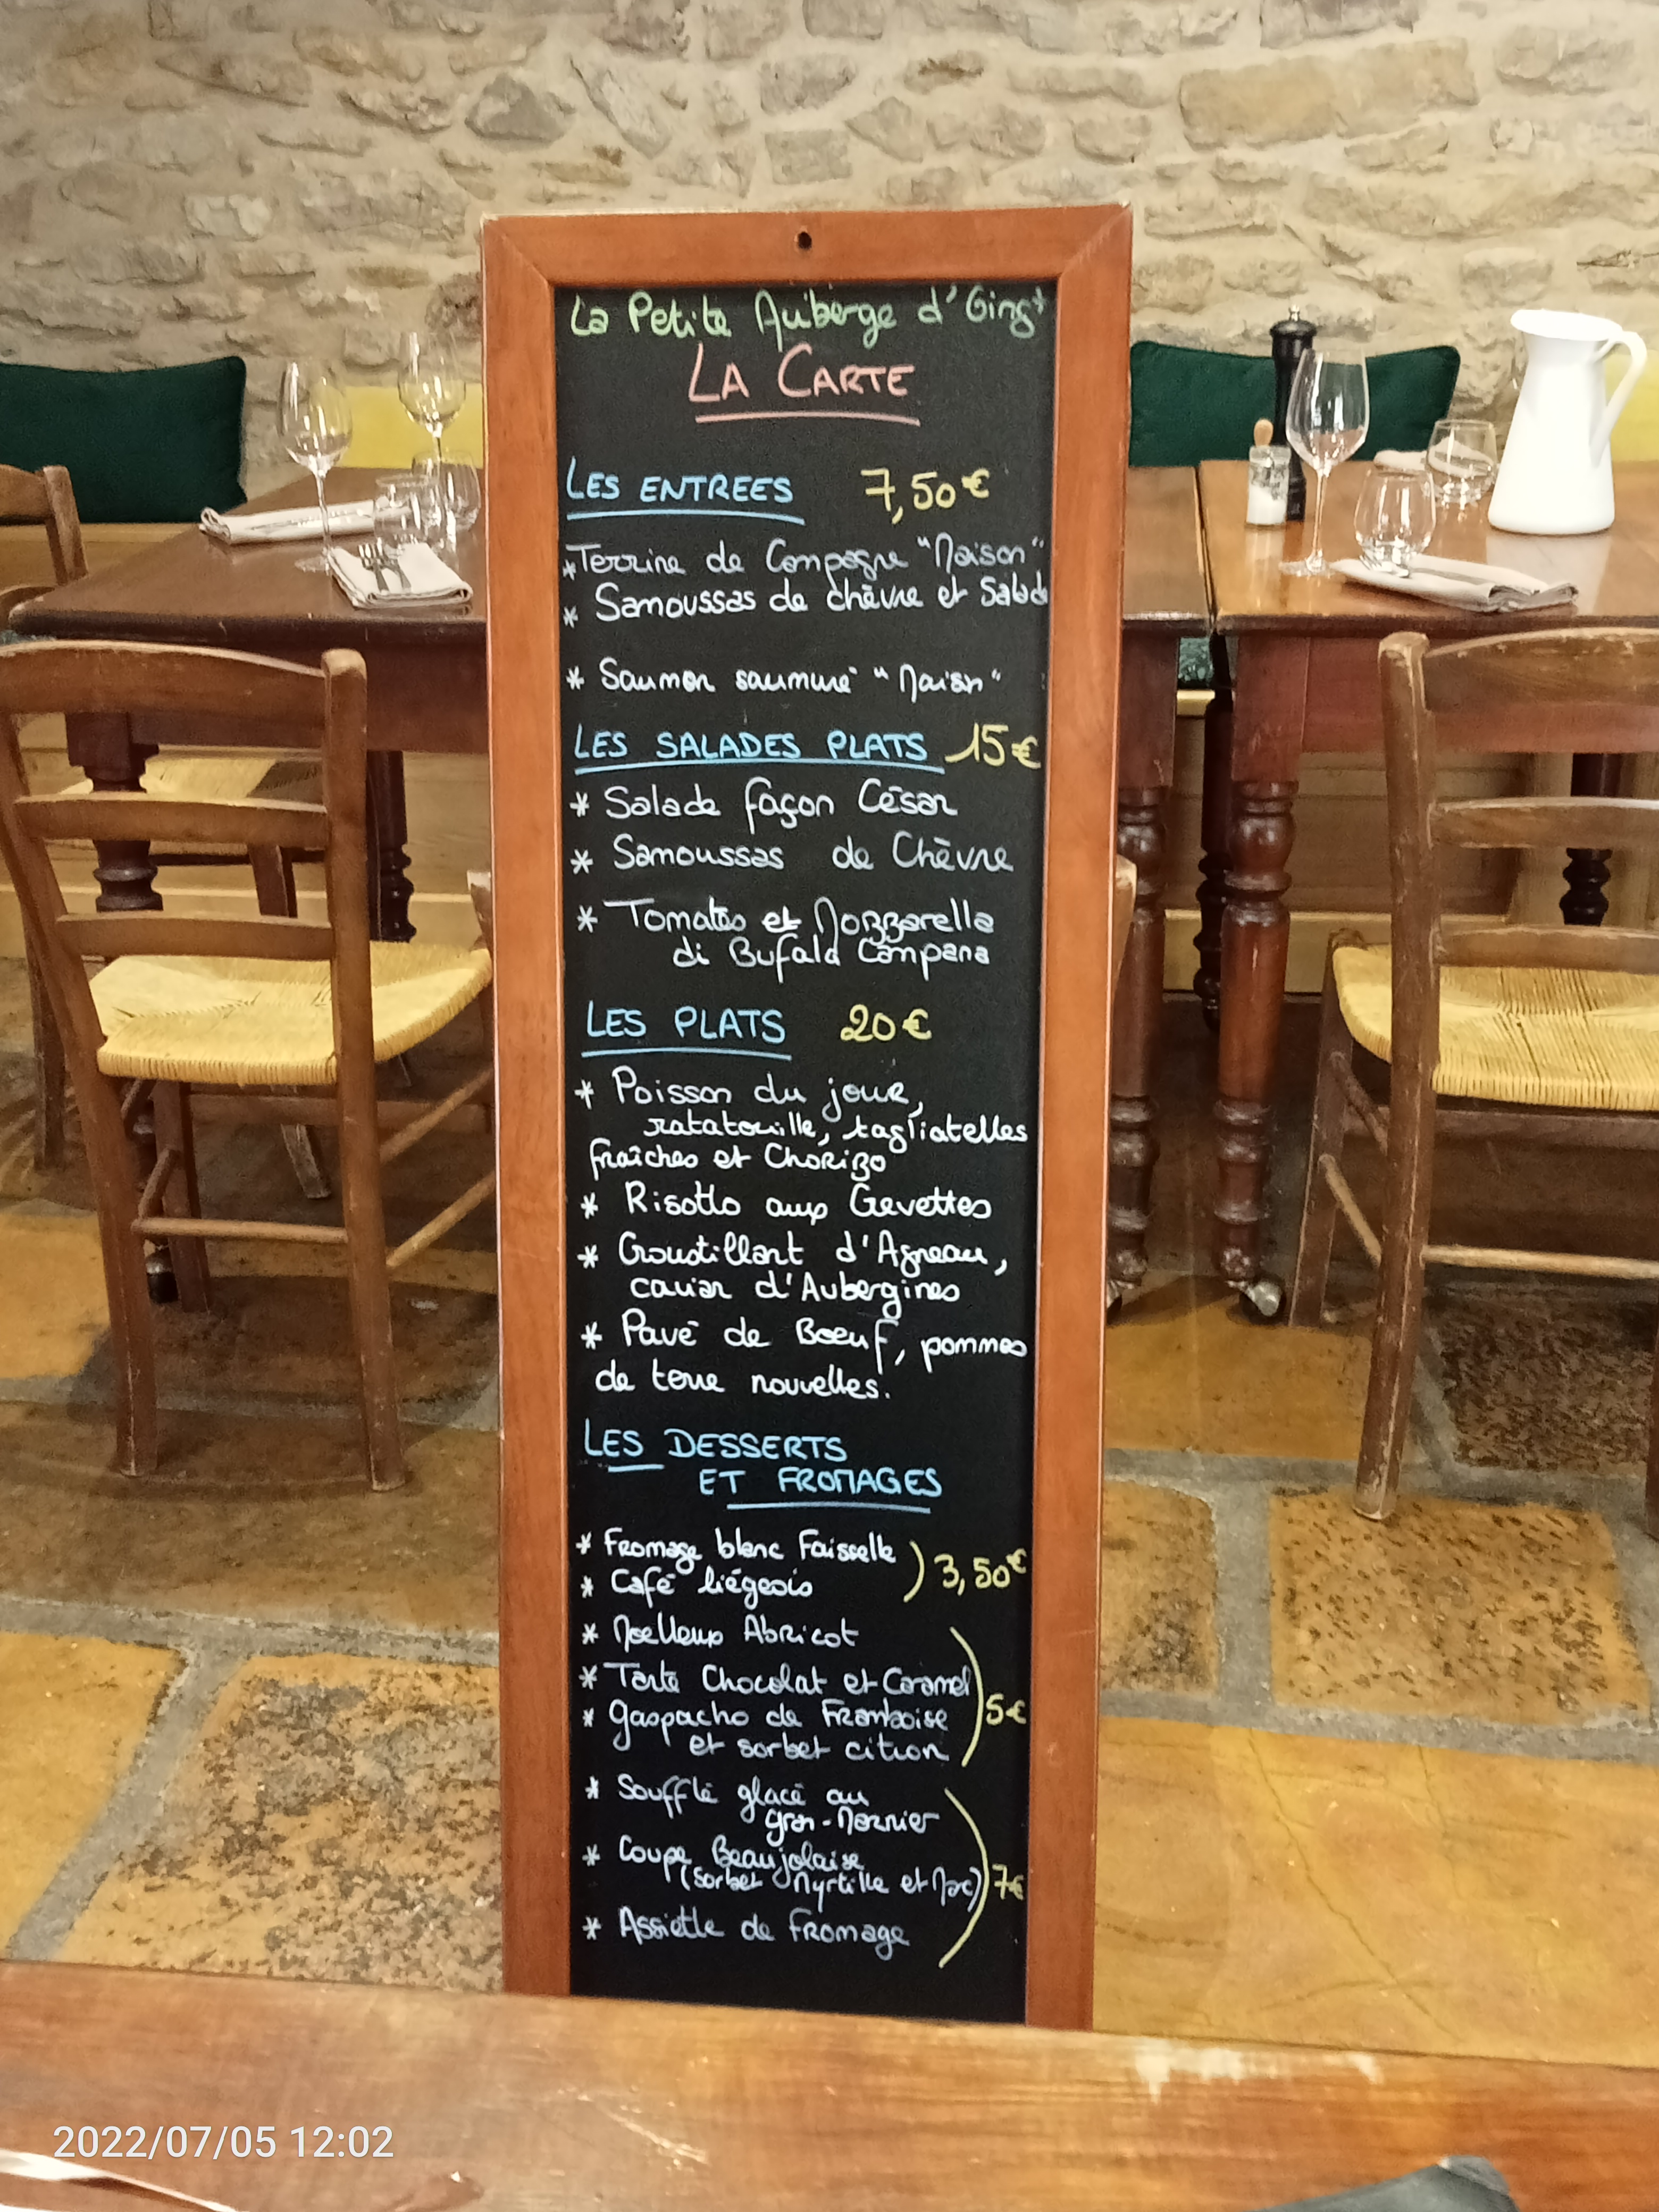 La Petite Auberge d'Gingt
LA CARTE
LES ENTREES 7,50€
*Terrine de Campagne "Maison"
* Samoussas de chèvre et Salade
* Saumon saumuré "Maison"
LES SALADES PLATS 15€
* Salade façon César
* Samoussas de Chèvre
* Tomates et Mozzarella
di Bufala Campana
LES PLATS 20€
* Poisson du jour,
ratatouille, tagliatelles
fraîches et Chorizo
* Risotto aux Crevettes
* Croustillant d'Agneau,
caviar d'Aubergines
* Pavé de Boeuf, pommes
de terre nouvelles.
LES DESSERTS
ET FROMAGES
* Fromage blanc Faisselle
* Café liégeois ) 3,50€
* Moelleux Abricot
* Tarte Chocolat et Caramel
* Gaspacho de Framboise ) 5€
et sorbet citron
* Soufflé glacé au
gran-Marnier
* Coupe Beaujolaise
(sorbet Myrtille et Marc) ) 7€
* Assiette de fromage
2022/07/05 12:02